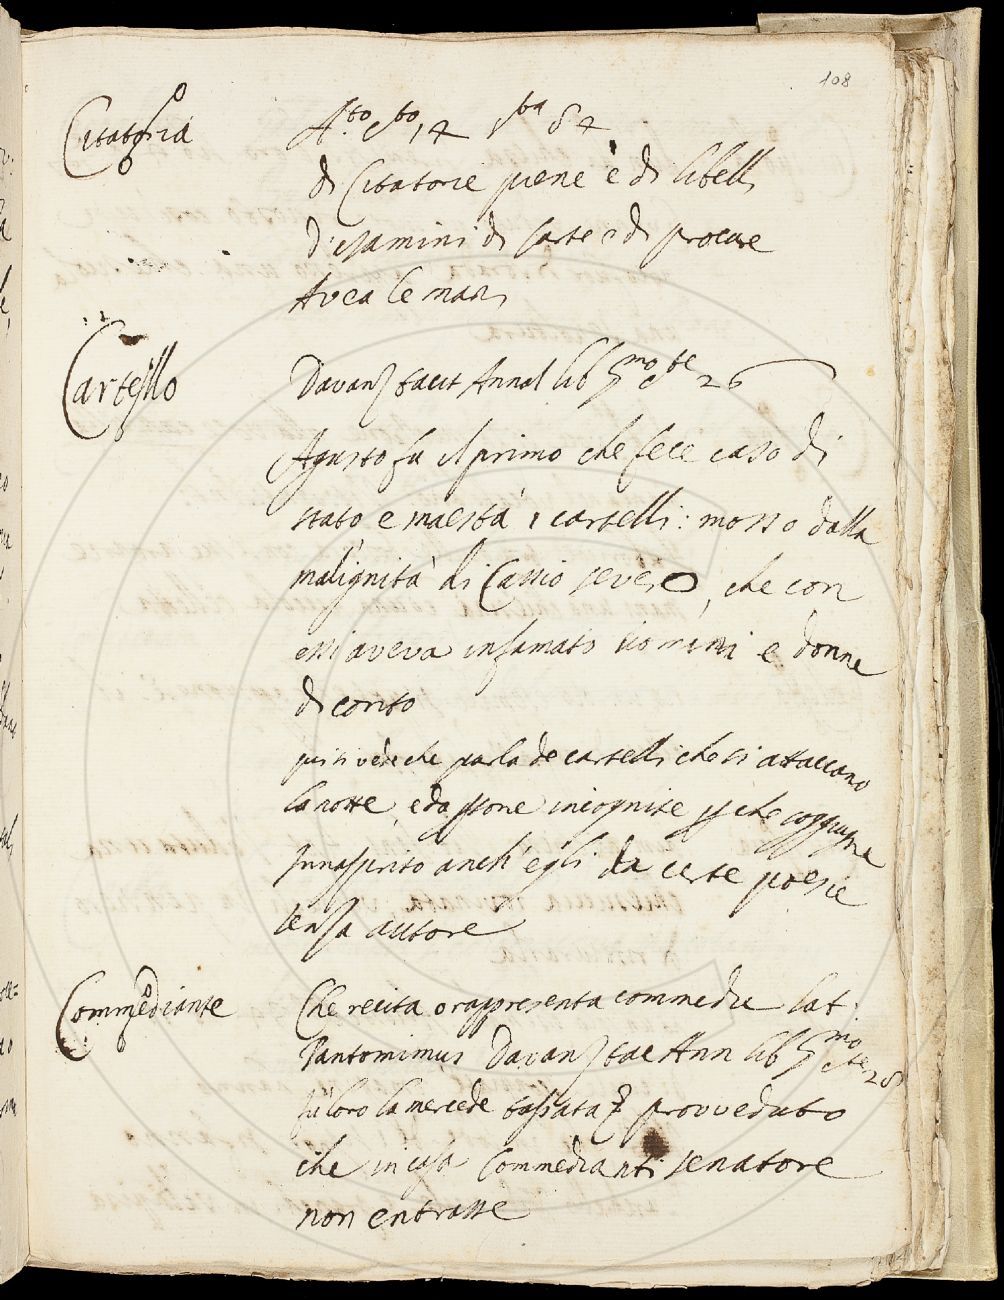 108
Citatoria
A.to c.to 14 s.ta 84
di Citatorie piene è di libelli
d'esamini di carte e di procure
Avea le mani
Cartello
Davanz tacit Annal lib p.mo c.te 26
Agusto fu il primo che fece caso di
stato e maestà i cartelli: mosso dalla
malignità di Cassio severo, che con
essi aveva infamato uomini e donne
di conto
qui si vede che parla de cartelli che si attaccano
la notte, e da psone incognite p che soggiugne
Innasprito anch'egli da certe poesie
senza autore
Commediante
Che recita o rappresenta commedie lat:
Pantomimus Davanz tac Ann lib p.mo c.te 28
fu loro la mercede tassata e provveduto
che in casa Commedianti senatore
non entrasse